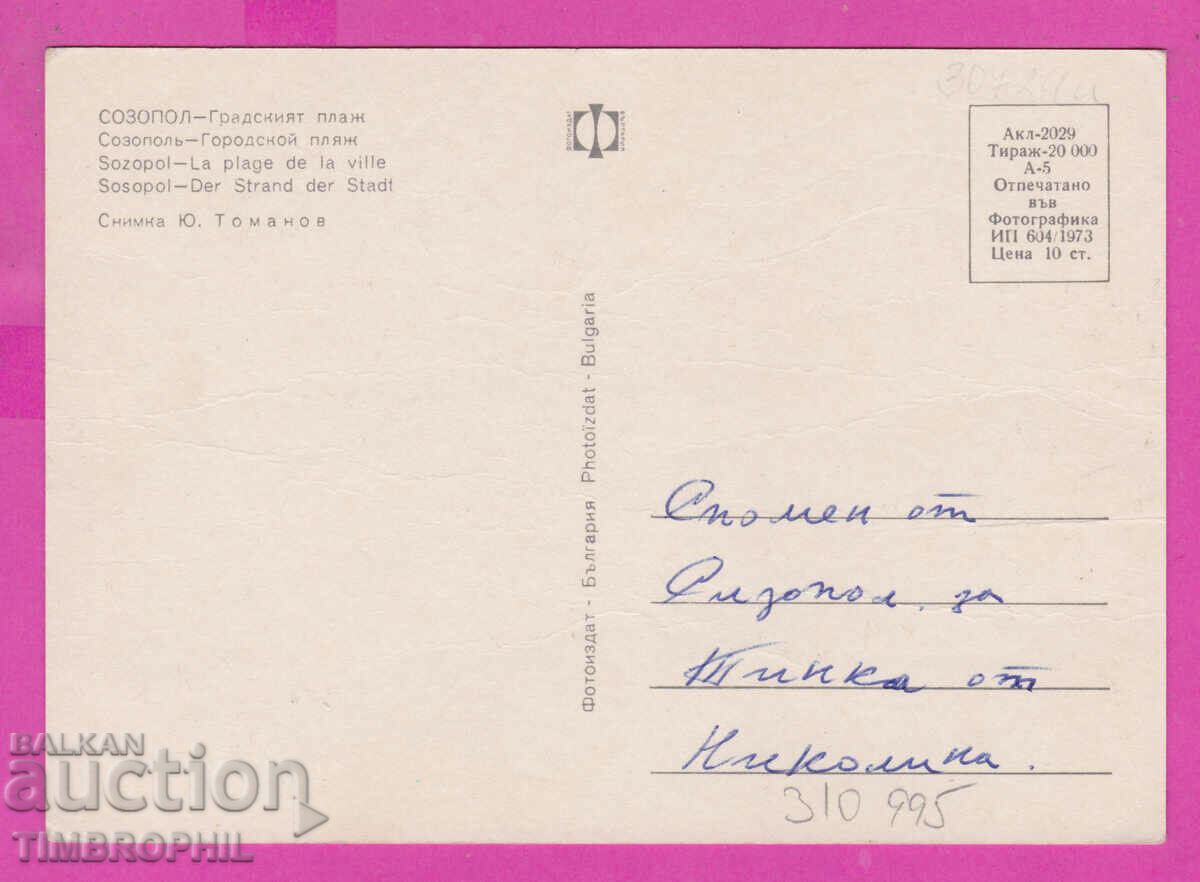 СОЗОПОЛ—Градският плаж
Созополь—Городской пляж
Sozopol—La plage de la ville
Sosopol—Der Strand der Stadt
Снимка Ю. Томанов
Фотоиздат - България Photoïzdat - Bulgaria
Акл-2029
Тираж-20 000
А-5
Отпечатано
във
Фотографика
ИП 604/1973
Цена 10 ст.
Спомен от
Сизопол за
Тинка от
Николина.
310 995
BALKAN
auction
TIMBROPHIL